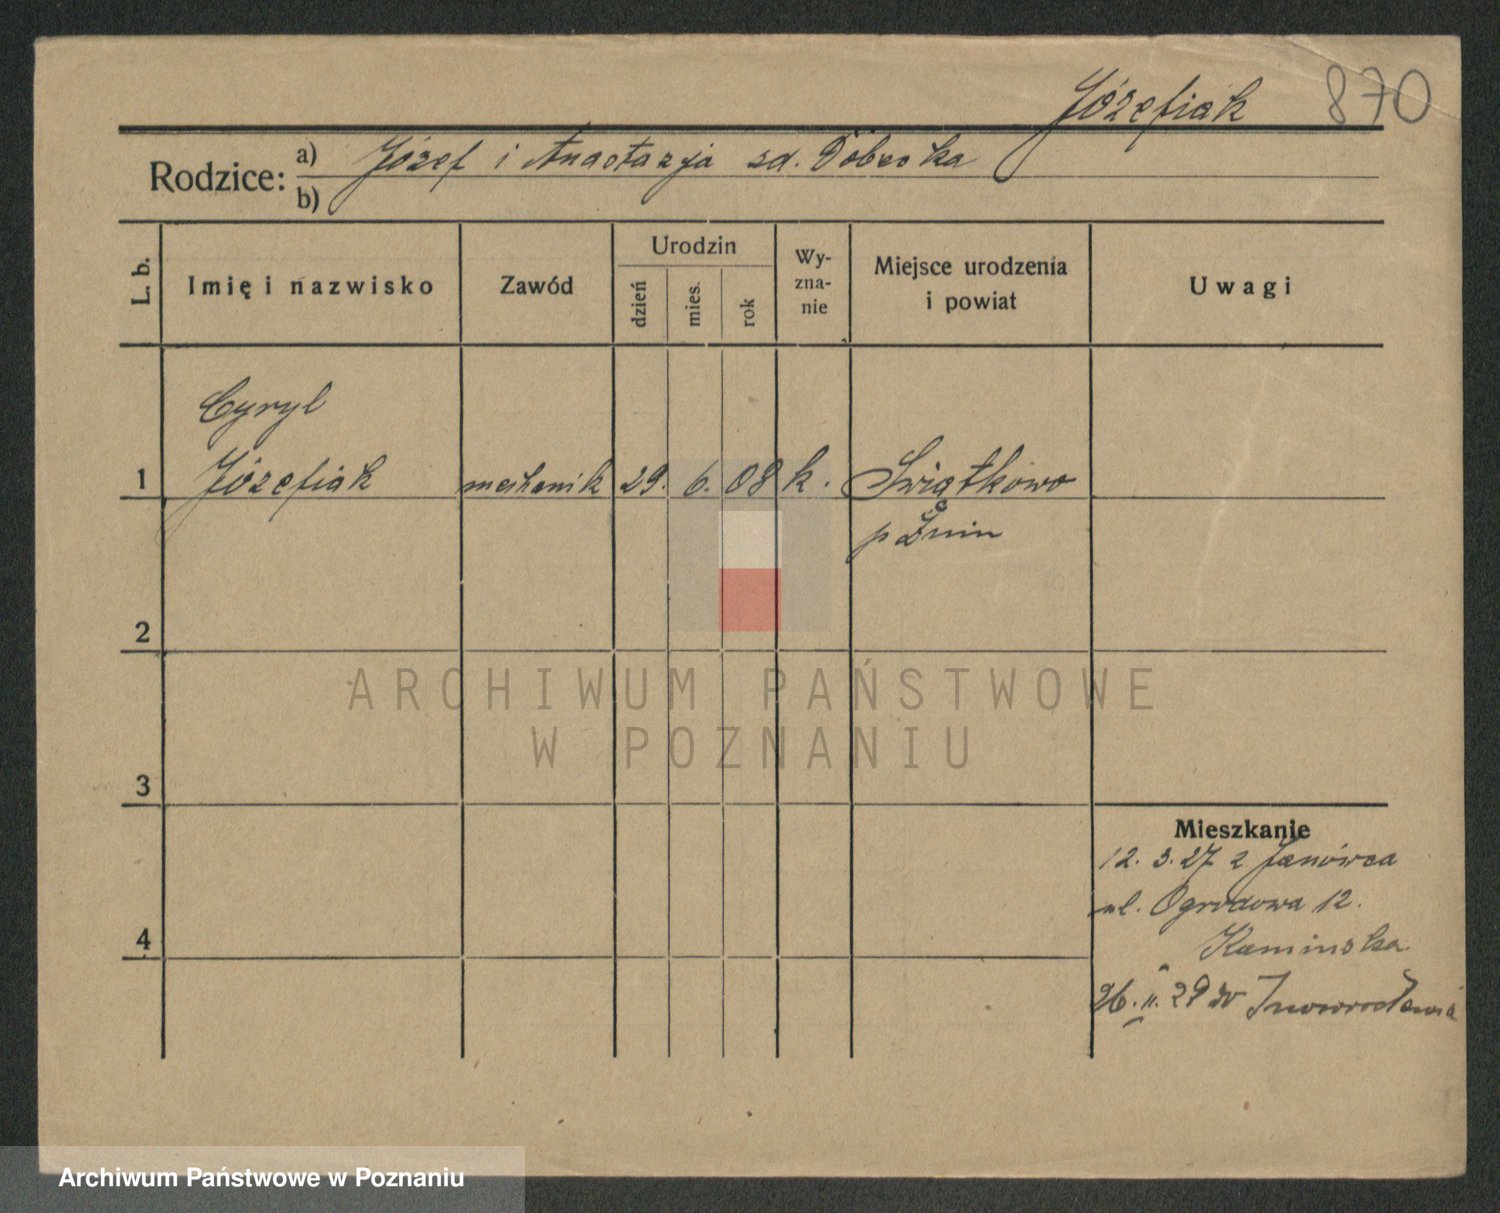 Józefiak 870
Rodzice: a) Józef i Anastazja zd. Dobecka
b)
L. b. Imię i nazwisko Zawód Urodzin dzień mies. rok Wy-zna-nie Miejsce urodzenia i powiat Uwagi
Cyryl
1 Józefiak mechanik 29. 6. 08 k. Świątkowo
p Żnin
2
ARCHIWUM PAŃSTWOWE
W POZNANIU
3
Mieszkanie
12. 3. 27 z Janówca
ul. Ogrodowa 12.
Kaminska
4
26. II. 29 do Inowrocławia
Archiwum Państwowe w Poznaniu